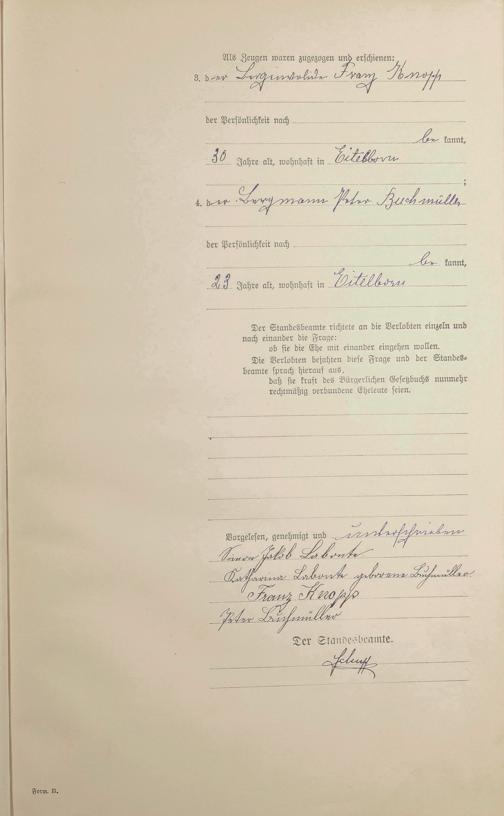 Als Zeugen waren zugezogen und erschienen:
3. der Franz Knopp
der Persönlichkeit nach
be kannt,
30 Jahre alt, wohnhaft in Eitelborn
;
4. der Bergmann Peter Buchmüller
der Persönlichkeit nach
be kannt,
23 Jahre alt, wohnhaft in Eitelborn
Der Standesbeamte richtete an die Verlobten einzeln und
nach einander die Frage:
ob sie die Ehe mit einander eingehen wollen.
Die Verlobten bejahten diese Frage und der Standes-
beamte sprach hierauf aus,
daß sie kraft des Bürgerlichen Gesetzbuchs nunmehr
rechtmäßig verbundene Eheleute seien.
Vorgelesen, genehmigt und unterschrieben
Jakob Labonte
Katharina Labonte geborene Buchmüller
Franz Knopp
Peter Buchmüller
Der Standesbeamte.
Form. B.